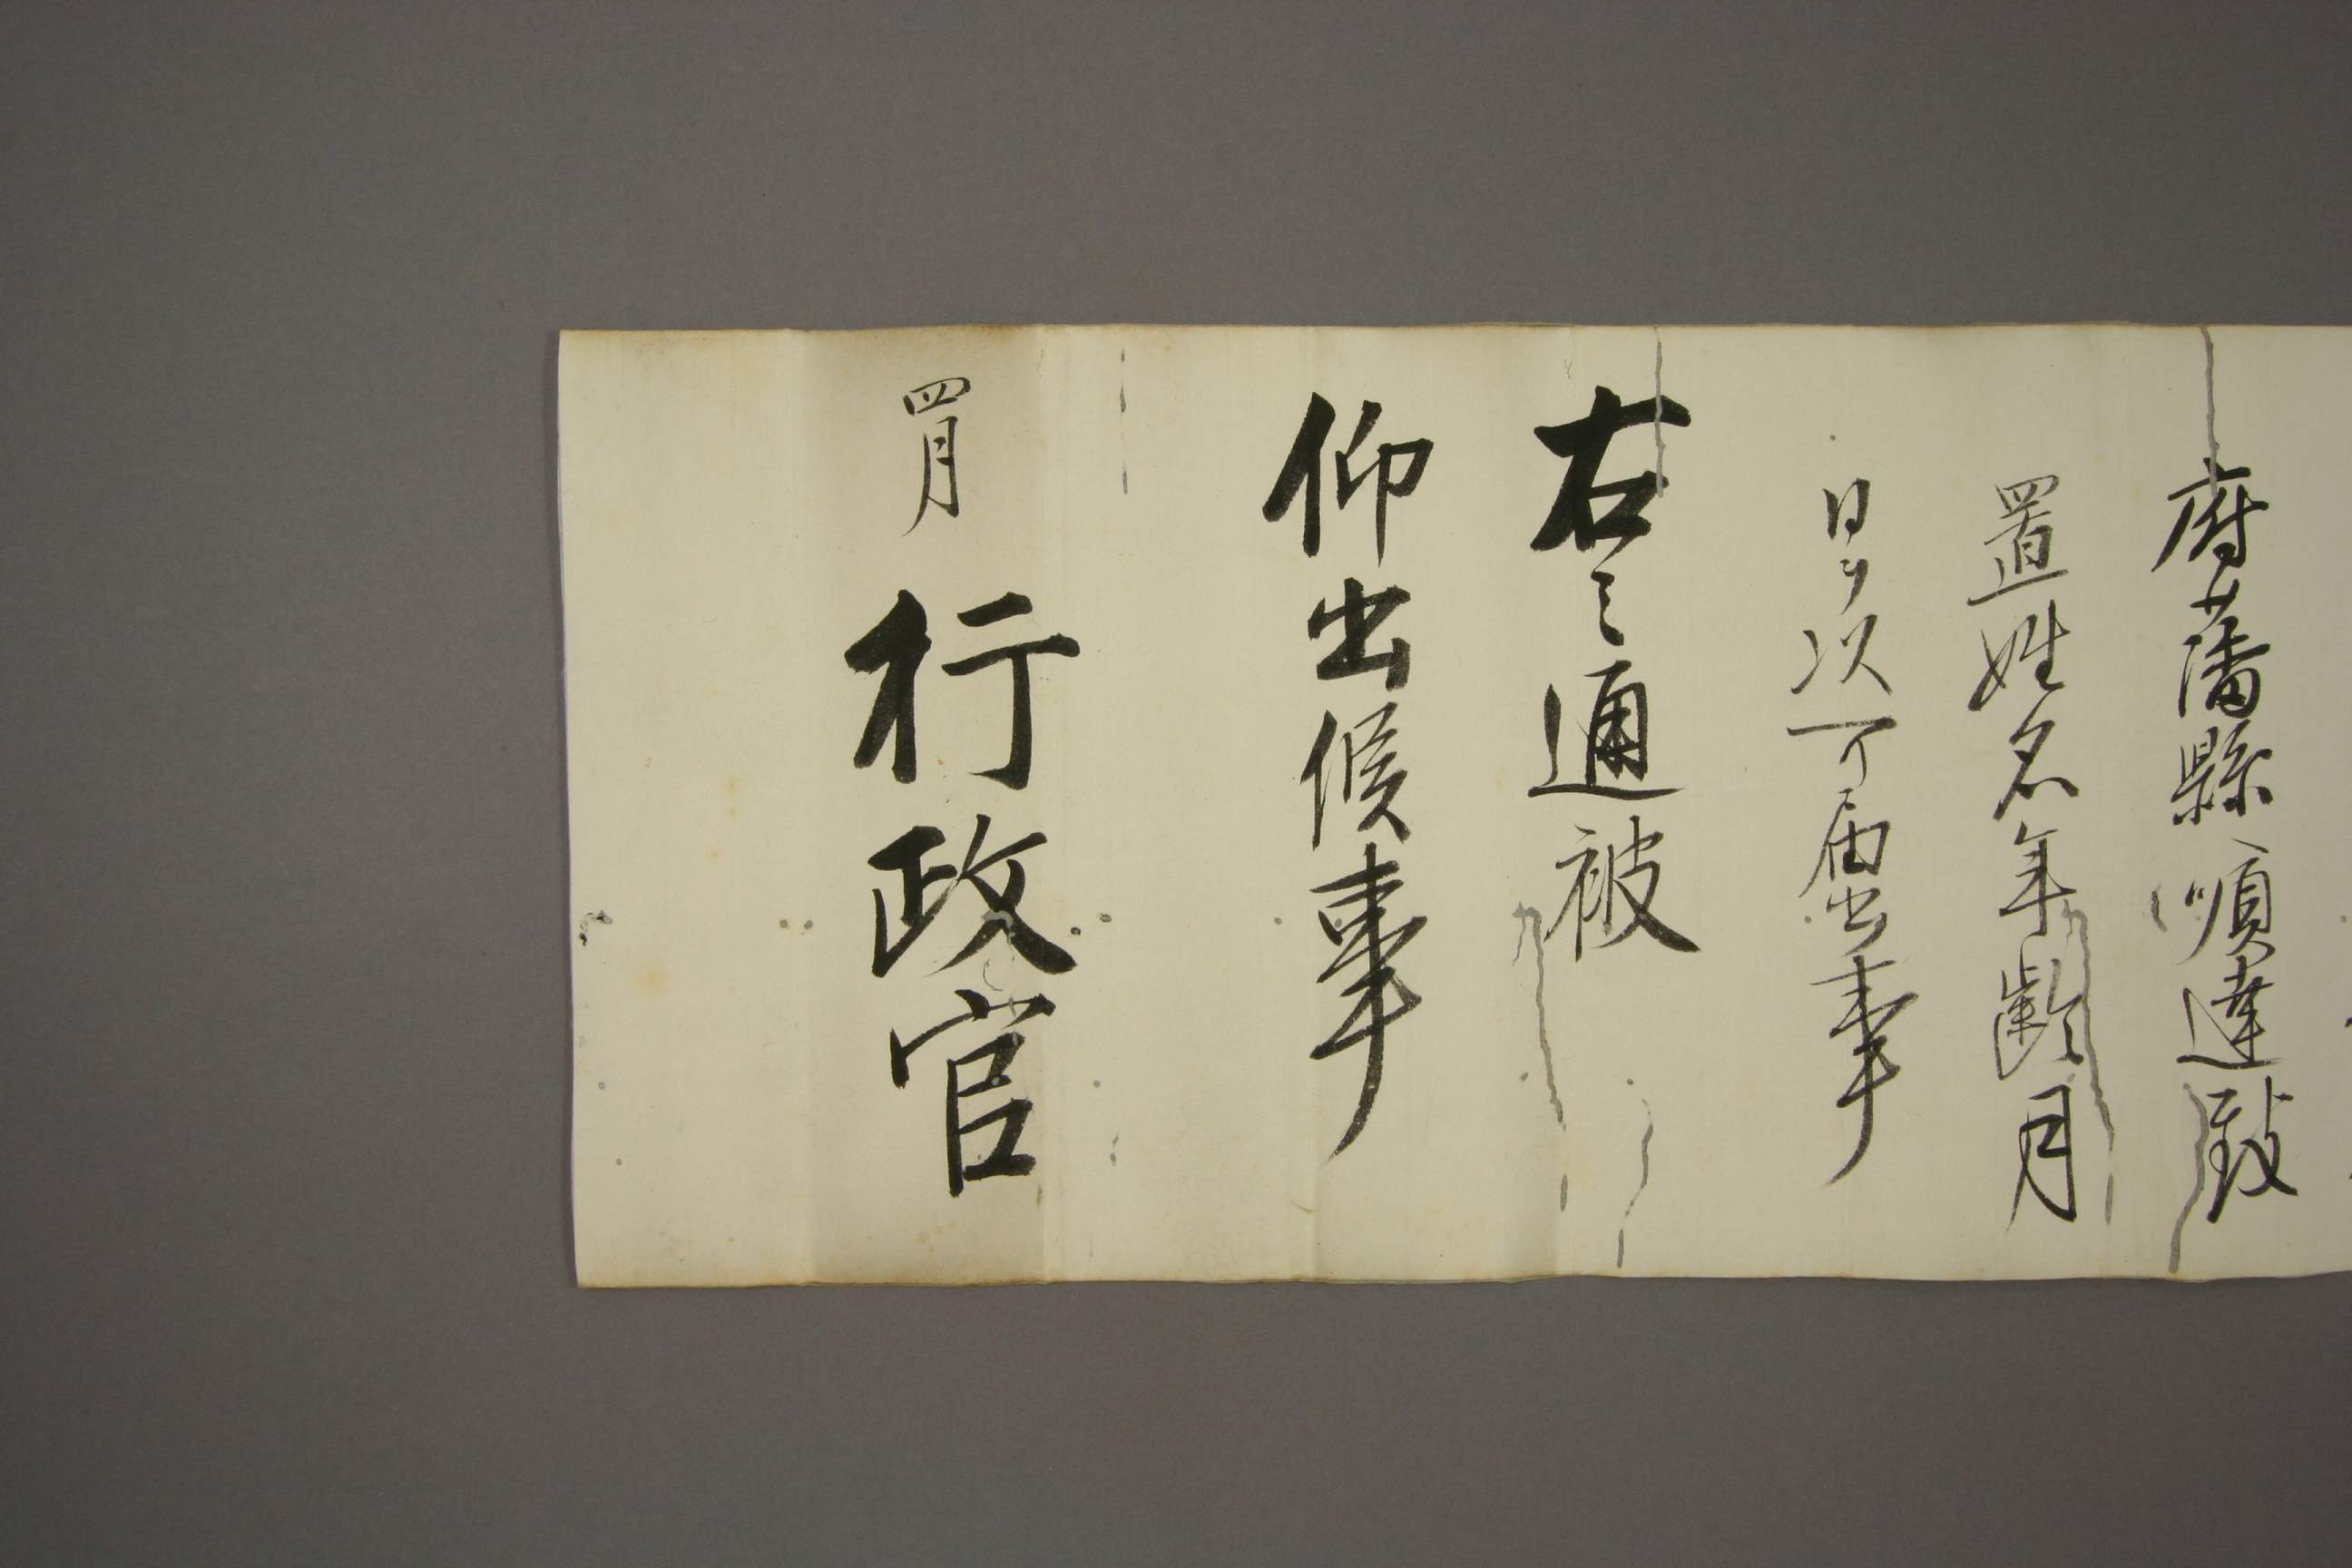 府藩縣順達致
置姓名年齢月
日ヲ以可届出事
右之通被
仰出候事
四月 行政官